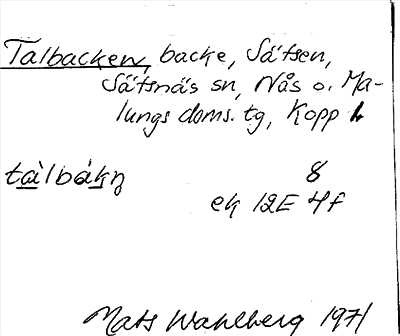 Talbacken, backe, Sätsen,
Sätsnäs sn, Nås o. Ma-
lungs doms. tg, Kopp l.
tàlbákn̥
8
ek 12E 4f
Mats Wahlberg 1971